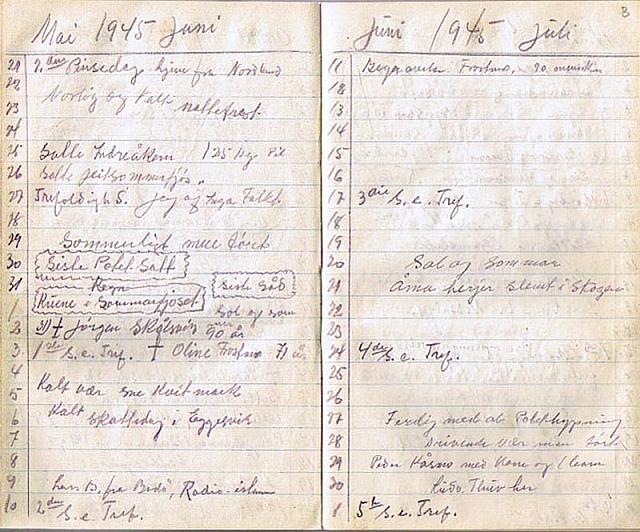 Mai 1945 Juni
21 2. den Pinsedag hjem fra Nordland
22
Norling og Falk nattefrost.
23
24
25 Satte Indreåkern 125 kg
26 Satte geitsommarfjøs
27 Trefoldigh S. Jeg og Inga Falkfl.
28
29 Sommerligt men tørt
30 Siste Potet Satt
31 Regn Siste Såd
1 Kuene i Sommarfjoset Sol og som
2 31) † Jørgen Skålsvik 90 år
3 1ste S. e. Tref. † Oline Frostmo 71 år
4
5 Kalt vær sne kvit mark
6 Kalt Skattedag i Eggesvik
7
8
9 Lars B. fra Bodö, Radio
10 2den S. e. Tref.
Juni 1945 Juli
B
11 Begravelse Frostmo. 90 mennsker
12
13
14
15
16
17 3die S. e. Tref.
18
19
20 Sol og Sommar
21 Åma herjer slemt i Skogen
22
23
24 4de S. e. Tref.
25
26
27 Ferdig med at Potethypning
28 Drivende vær men tørt
29 Peder Kåsmo med Kone og 1 barn
30 her
1 5te S. e. Tref.